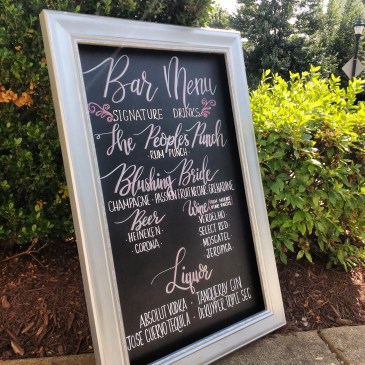 Bar Menu
SIGNATURE DRINKS
The Peoples Punch
· RUM PUNCH ·
Blushing Bride
CHAMPAGNE · PASSION FRUIT NECTAR · GRENADINE
Beer
· HEINEKEN ·
· CORONA ·
Wine
VERDELHO
SELECT RED
MOSCATEL
JEROPIGA
Liquor
ABSOLUT VODKA · TANQUERAY GIN
JOSE CUERVO TEQUILA · DEKUYPER TRIPLE SEC